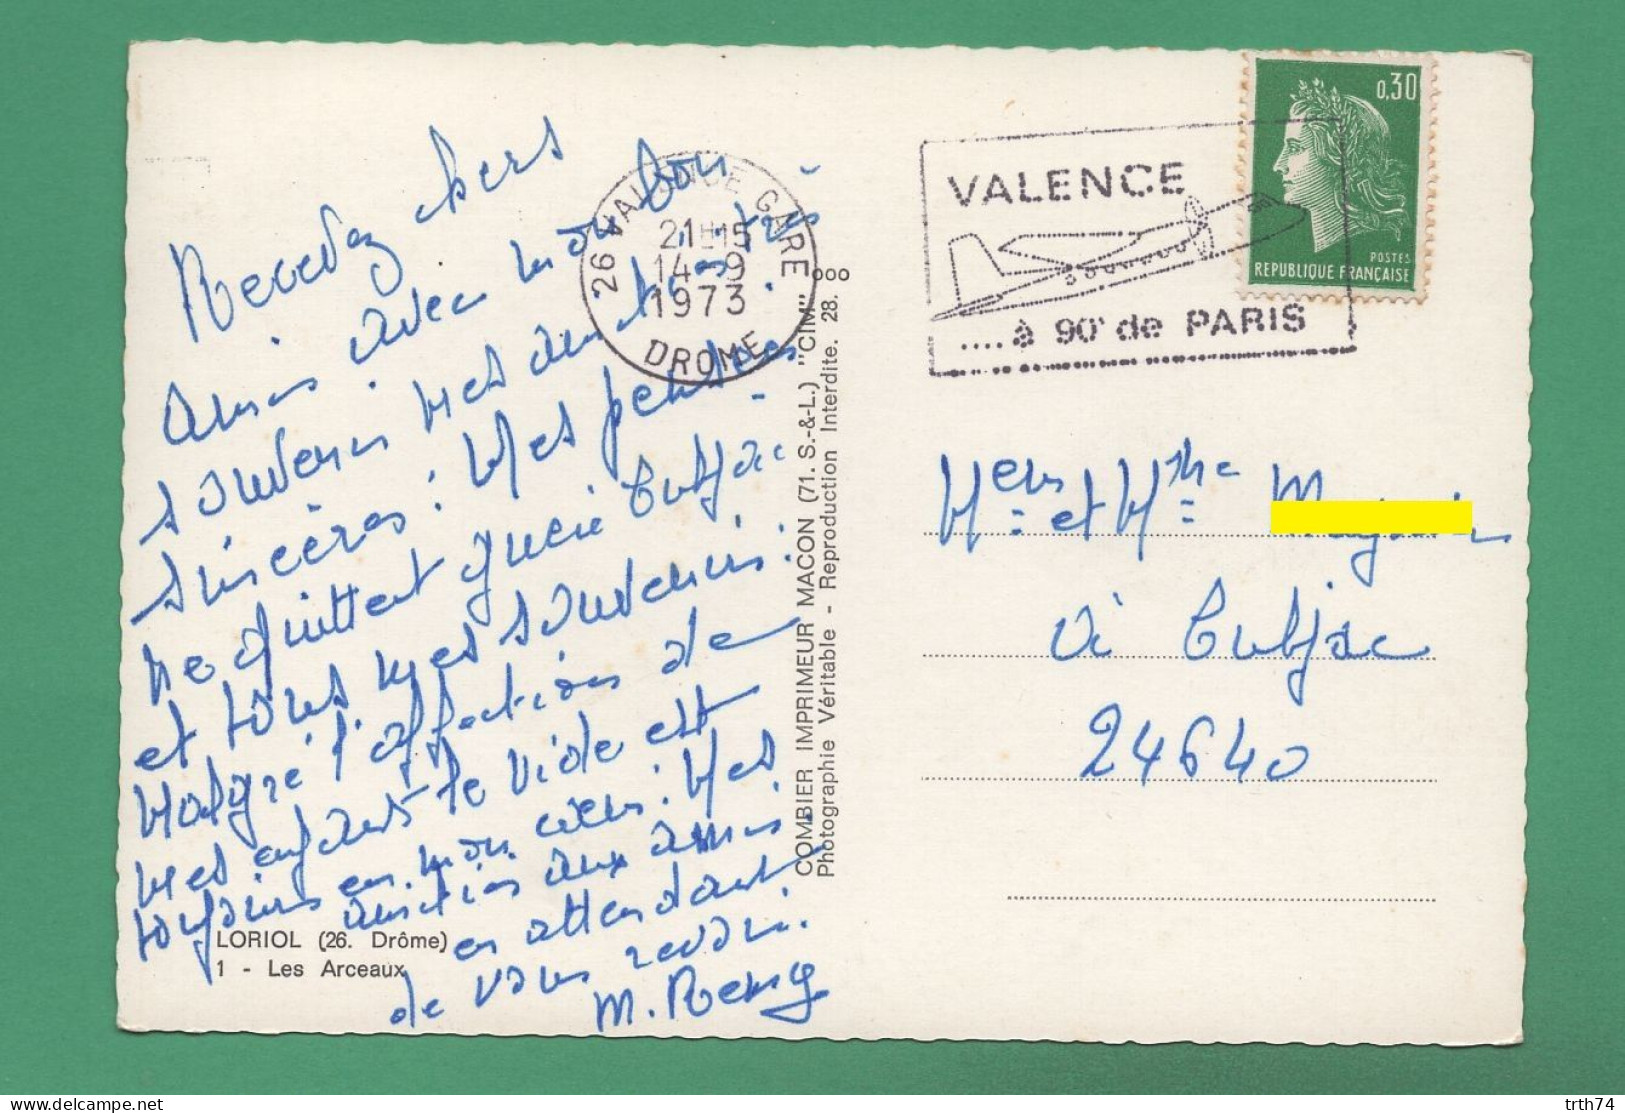 Recevez chers
amis avec mon bon
souvenir mes amitiés très
sincères. Mes pensées
ne quittent guère Cubjac
et tous mes souvenirs.
Malgré l'affection de
mes enfants le vide est
toujours en mon cœur. Mes
amitiés aux amis.
en attendant
de vous revoir.
M. Remy
LORIOL (26. Drôme)
1 - Les Arceaux
26 VALENCE GARE
21H15
14-9
1973
DROME
COMBIER IMPRIMEUR MACON (71. S.-&-L.) "CIM"
Photographie Véritable - Reproduction Interdite. 28.
VALENCE
.... à 90' de PARIS
0,30
POSTES
REPUBLIQUE FRANÇAISE
Meur et Mme
à Cubjac
24640
trth74